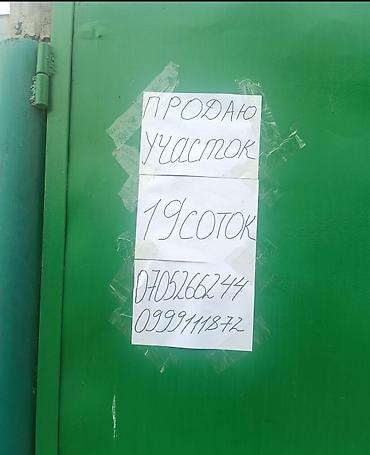 ПРОДАЮ
УЧАСТОК
19 СОТОК
0705266244
0999111872